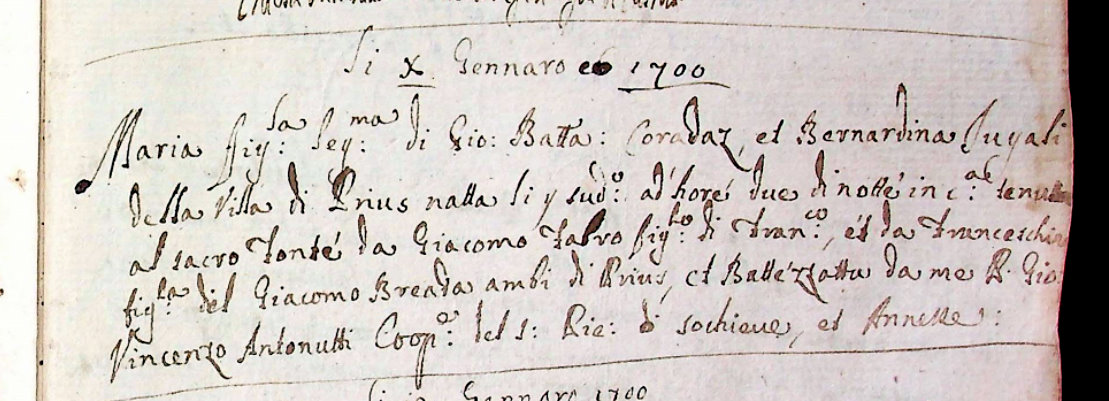 Li X Gennaro 1700
Maria fig:la leg:ma di Gio: Batta: Coradaz, et Bernardina Jugali
della Villa di Prius natta li 9 sud:o ad hore due di notte in c:a tenutta
al sacro fonte da Giacomo Fabro fig:lo di Fran:co, et da Franceschina
fig:la del Giacomo Breada ambi di Prius, et Battezzatta da me P. Gio:
Vincenzo Antonutti Coop:e del s: Pie: di sochieue, et Annesse:
Gennaro 1700